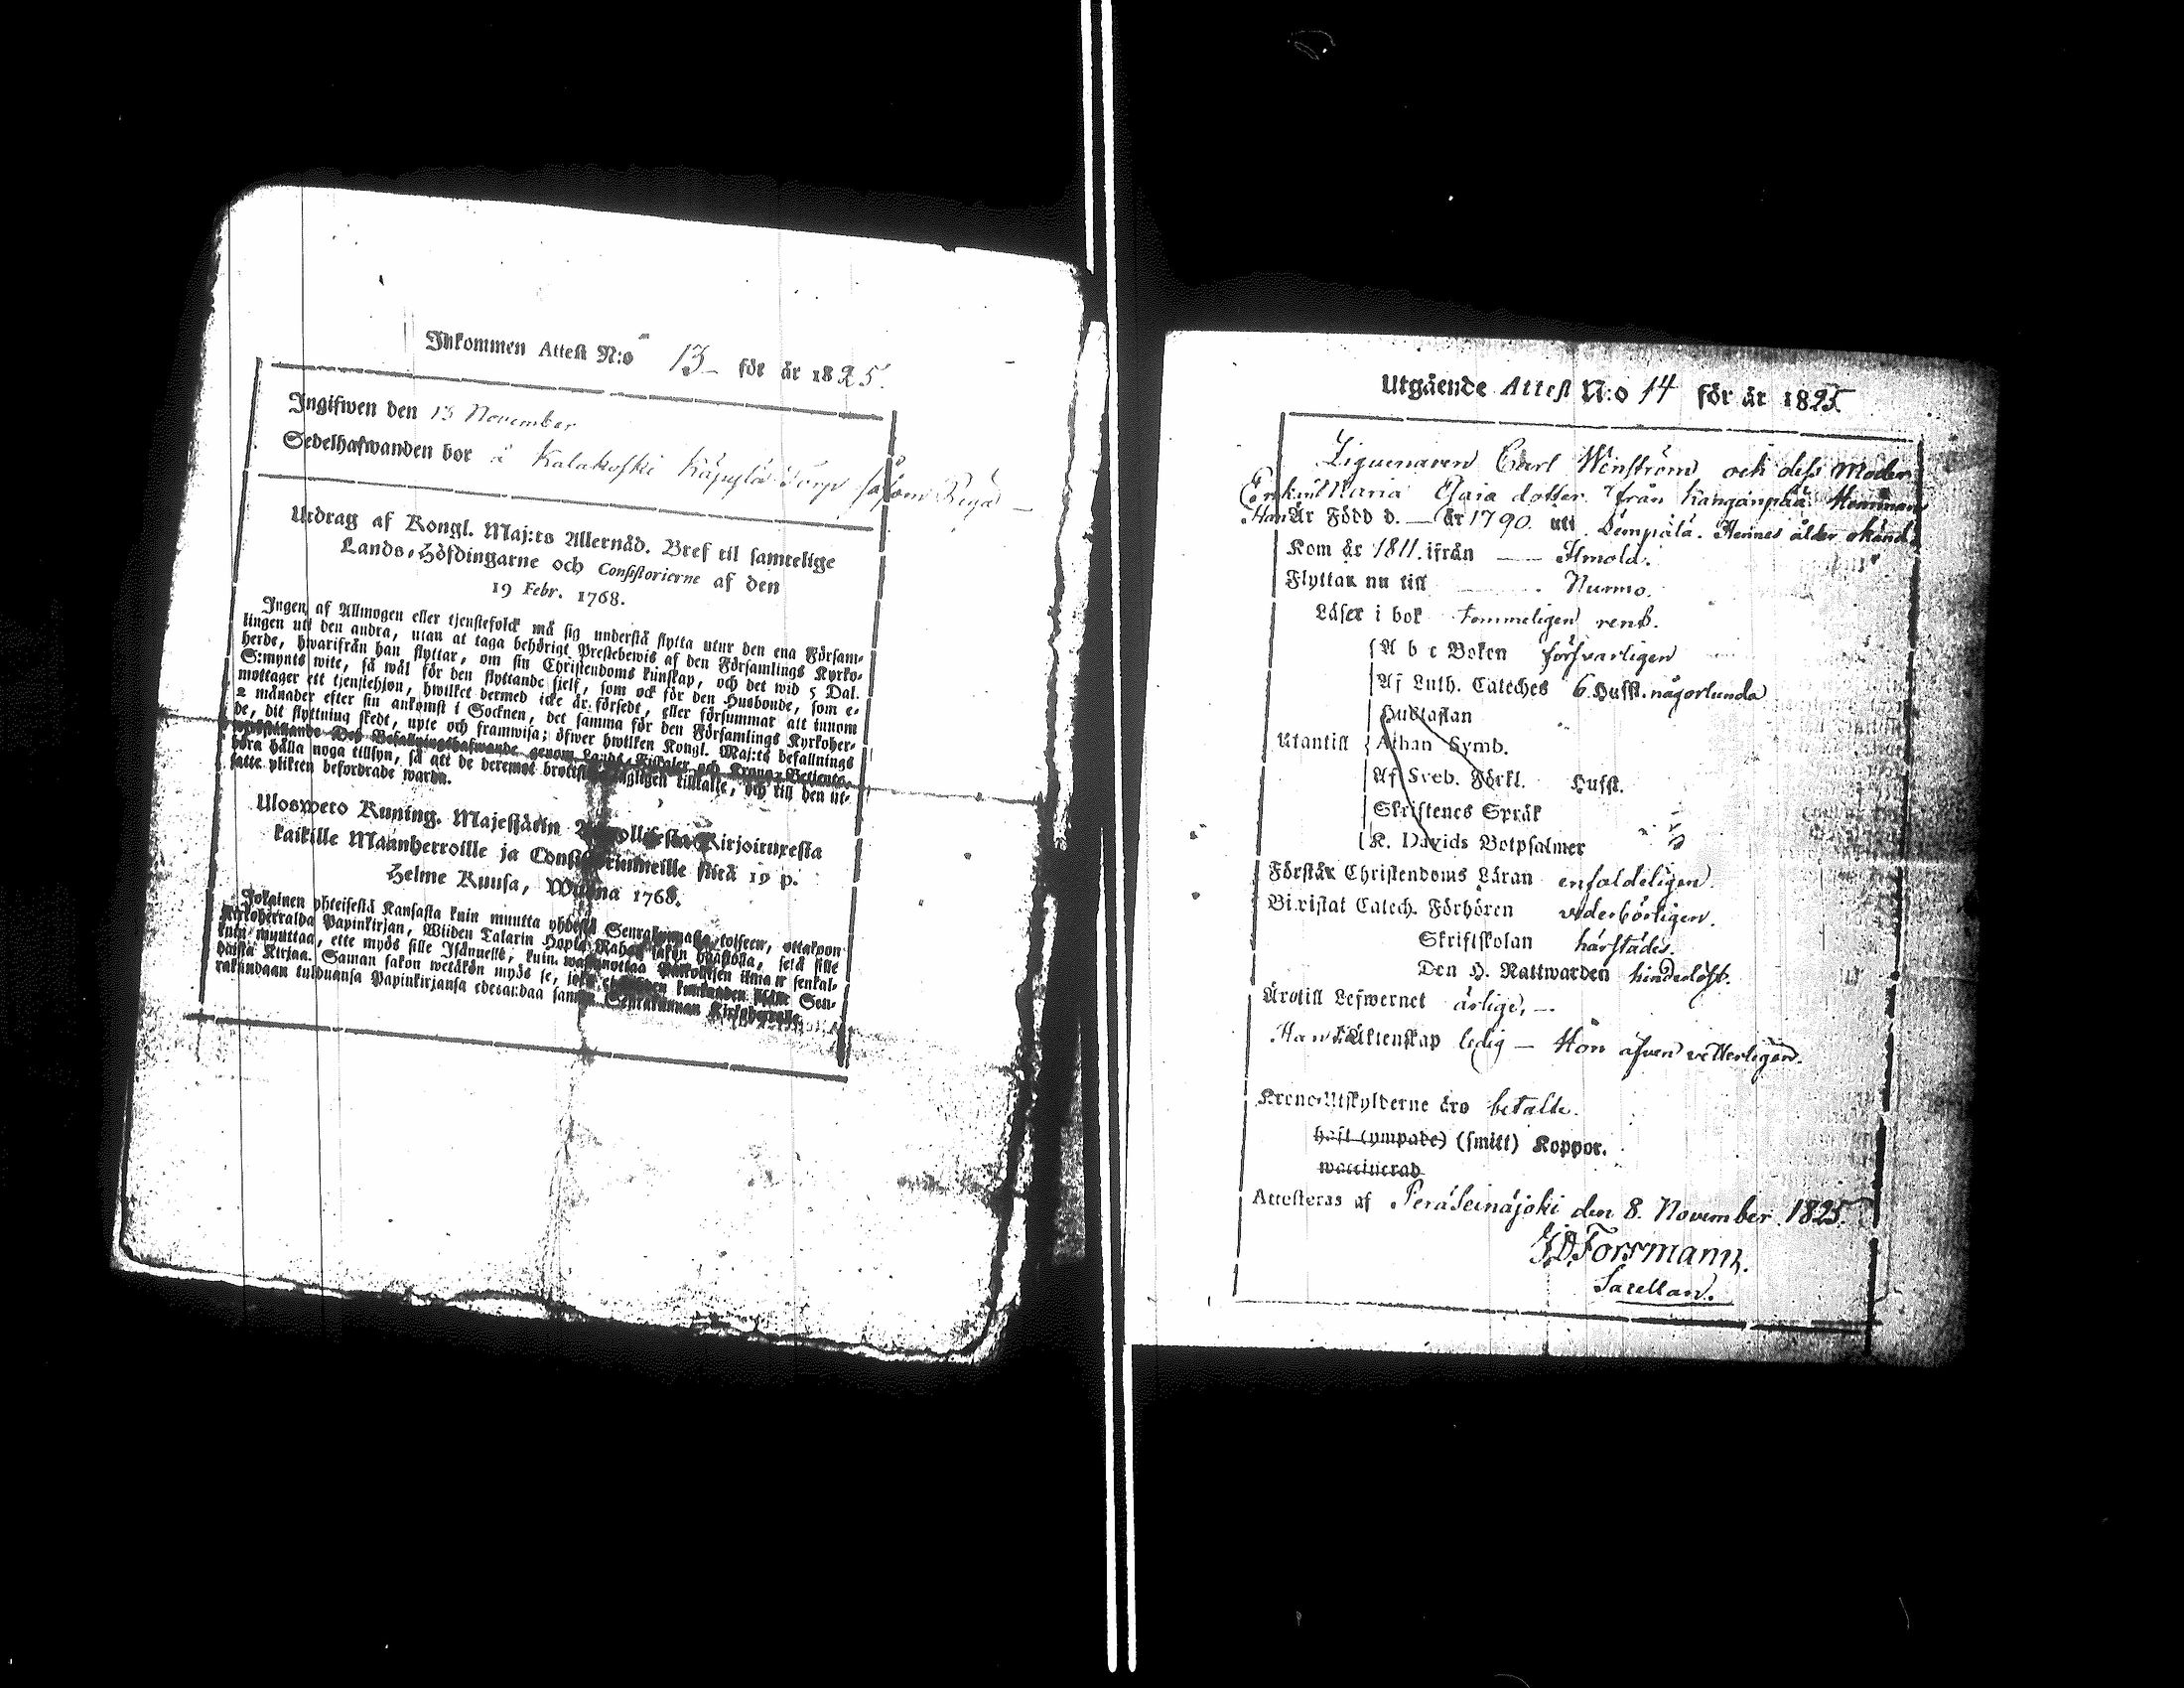 Inkommen Attest N:o 13 för år 1825.
Ingifwen den 13 November
Sedelhafwanden bor å Kalakoski Käpylä Torp såsom
Utdrag af Kongl. Maj:ts Allernåd. Bref til samtelige
Lands-Höfdingarne och Consistorierne af den
19 Febr. 1768.
Ingen af Allmogen eller tjenstefolck må sig understå flytta utur den ena Försam-
lingen uti den andra, utan at taga behörigt Prestebewis af den Församlings Kyrko-
herde, hwarifrån han flyttar, om sin Christendoms kunskap, och det wid 5 Dal.
S:mynts wite, så wäl för den flyttande sjelf, som ock för den Husbonde, som e-
mottager ett tjenstehjon, hwilket dermed icke är försedt, eller försummar att innom
2 månader efter sin ankomst i Socknen, det samma för den Församlings Kyrkoher-
de, dit flyttning skedt, upte och framwisa; öfwer hwilken Kongl. Maj:ts befallnings
Befallningshafwande genom Lands-Fiskaler och Crono-Betjente
böra hålla noga tillsyn, så att de deremot lagligen tilltalte, och till den ut-
satte plikten befordrade warda.
Ulosweto Kuning. Majestätin Kirjoituxesta
kaikille Maanherroille ja sitä 19 p.
Helme Kuusa, Wuona 1768.
Jokainen yhteisestä Kansasta kuin muutta yhdestä Seurakunnasta toiseen, ottakoon
Kirkoherralda Papinkirjan, Wiiden Talarin Hopia Rahan sakon haastolla, sekä sille
kuin muuttaa, ette myös sille Isännelle, kuin senkal-
daista Kirjaa. Saman sakon wetäkön myös se, joka Seu-
rakundaan tulduansa Papinkirjansa edesandaa saman Seurakunnan Kirkoherralle.
Utgående Attest N:o 14 för år 1825.
Carl Winström och dess Moder
Enkan Maria dotter ifrån Kanganpää Hemman
Han Är Född d. — år 1790. uti Lempälä. Hennes ålder okänd.
Kom år 1811. ifrån — Ilmola.
Flyttar nu till — Nurmo.
Läser i bok temmeligen rent.
A b c Boken försvarligen
Af Luth. Cateches 6. Hufst. någorlunda
Hustaflan
Utantill Athan Symb.
Af Sveb. Förkl. Hufst.
Skriftenes Språk
K. Davids Botpsalmer
Förstår Christendoms Läran enfaldeligen.
Bivistat Catech. Förhören vederbörligen.
Skriftskolan härstädes.
Den H. Nattwarden hinderlöst.
Äro till Lefwernet ärlige, —
Han till Äktenskap ledig — Hon äfven vetterligen.
Krono-Utskylderne äro betalte.
haft (ympade) (smitt) Koppor.
waccinerad
Attesteras af Peräseinäjoki den 8. November 1825.
J. D. Forssmann.
Sacellan.